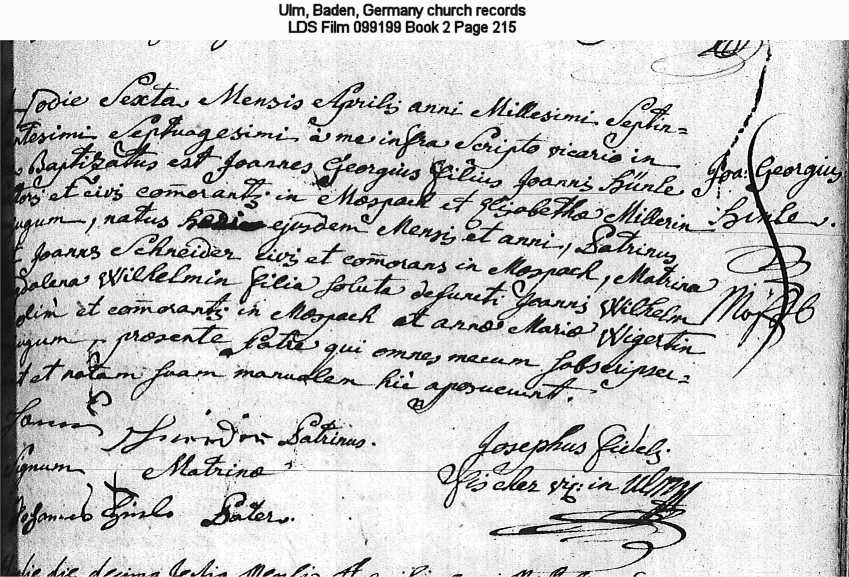 Ulm, Baden, Germany church records
LDS Film 099199 Book 2 Page 215
Hodie Sexta Mensis Aprilis anni Millesimi Septin=
ntesimi Septuagesimi à me infra Scripto vicario in
Baptizatus est Joannes Georgius filius Joannis Hünle
et civis com̄orantis in Mospach et Elisabethæ Millerin
ugum, natus hodie ejusdem Mensis et anni, Patrinus
Joannes Schneider civis et com̄orans in Mospach, Matrina
gdalena Wilhelmin filia soluta defuncti Joannis Wilhelm
olim et com̄orantis in Mospach et annæ Mariæ Wigertin
ugum, præsente Patre qui omnes mecum subscripser=
t et notam suam manualem hic aposuerunt.
Joa: Georgius
Hinle.
Patrinus.
Signum Matrinæ
Johannes Hinlo Pater.
Josephus fidelis
Fischer vic: in Ulm
die decima